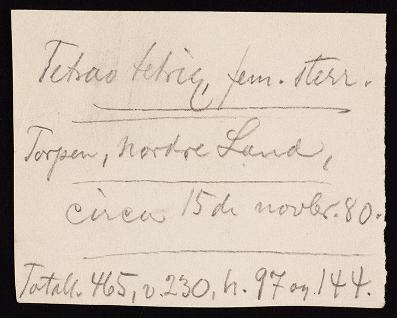 Tetrao tetrix, fem. steril.
Torpen, Nordre Land,
circa 15de novbr. 80.
Totall. 465, v. 230, h. 97 og 144.